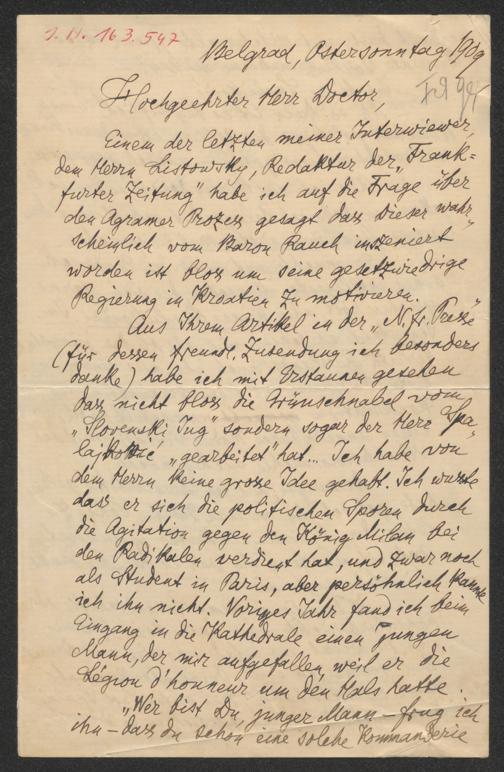 I.N. 163.547
Belgrad, Ostersonntag 1909
Hochgeehrter Herr Doctor,
Einem der letzten meiner Interwiewer,
dem Herrn Listowsky, Redaktur der „Frank=
furter Zeitung" habe ich auf die Frage über
den Agramer Prozess gesagt dass dieser wahr=
scheinlich vom Baron Rauch inszeniert
worden ist blos um seine gesetzwiedrige
Regierung in Kroatien zu motivieren.
Aus Ihrem Artikel in der „N. fr. Presse"
(für dessen freundl. Zusendung ich besonders
danke) habe ich mit Erstaunen gesehen
dass nicht blos die Grünschnabel vom
„Slovenski Jug" sondern sogar der Herr Spa=
lajković „gearbeitet" hat... Ich habe von
dem Herrn keine grosse Idee gehabt. Ich wusste
dass er sich die politischen Sporen durch
die Agitation gegen den König Milan bei
den Radikalen verdient hat, und zwar noch
als Student in Paris, aber persöhnlich kannte
ich ihn nicht. Voriges Jahr fand ich beim
Eingang in die Kathedrale einen jungen
Mann, der mir aufgefallen weil er die
Légion d'honneur um den Hals hatte.
„Wer bist Du, junger Mann – frug ich
ihn – dass du schon eine solche Kommanderie